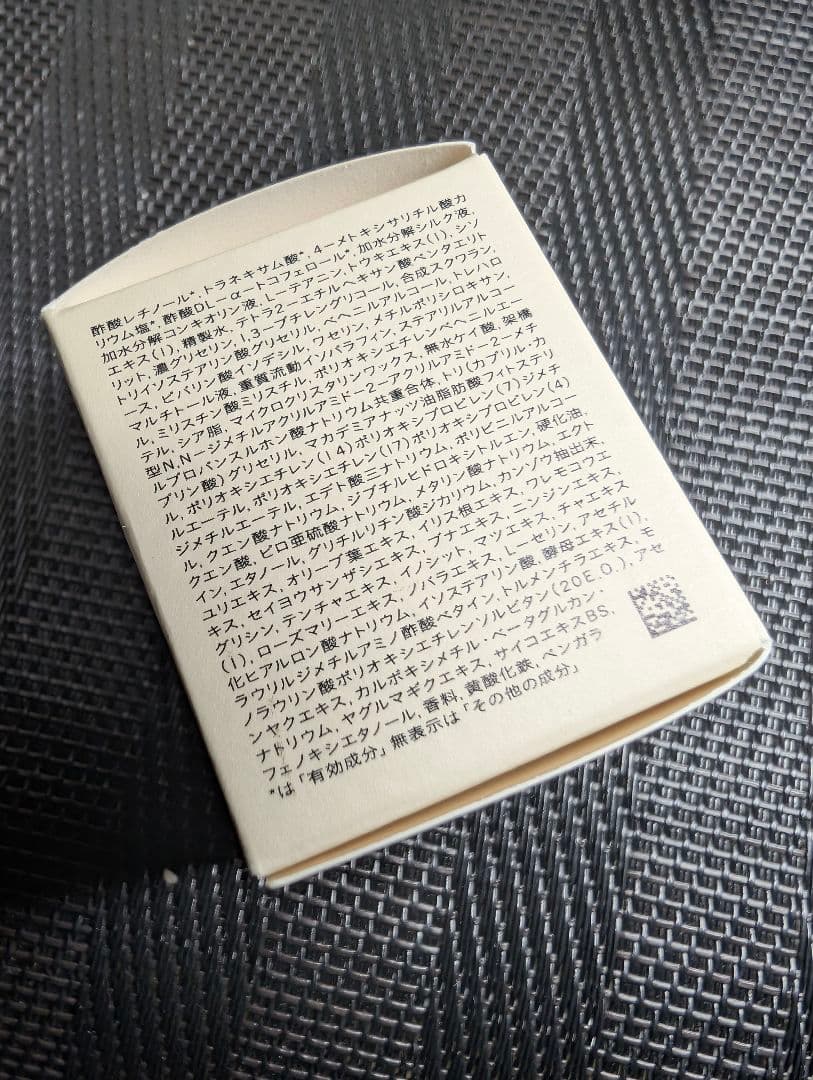 酢酸レチノール*, トラネキサム酸*, 4－メトキシサリチル酸カ
リウム塩*, 酢酸DL－α－トコフェロール*, 加水分解シルク液,
加水分解コンキオリン液, L－テアニン, トウキエキス(1), シソ
エキス(1), 精製水, テトラ2－エチルヘキサン酸ペンタエリト
リット, 濃グリセリン, 1,3－ブチレングリコール, 合成スクワラン,
トリイソステアリン酸グリセリル, ベヘニルアルコール, トレハロ
ース, ピバリン酸イソデシル, ワセリン, メチルポリシロキサン,
マルチトール液, 重質流動イソパラフィン, ステアリルアルコー
ル, ミリスチン酸ミリスチル, ポリオキシエチレンベヘニルエー
テル, シア脂, マイクロクリスタリンワックス, 無水ケイ酸, 架橋
型N,N－ジメチルアクリルアミド－2－アクリルアミド－2－メチ
ルプロパンスルホン酸ナトリウム共重合体, トリ(カプリル・カ
プリン酸)グリセリル, マカデミアナッツ油脂肪酸フィトステリ
ル, ポリオキシエチレン(14)ポリオキシプロピレン(7)ジメチ
ルエーテル, ポリオキシエチレン(17)ポリオキシプロピレン(4)
ジメチルエーテル, エデト酸三ナトリウム, ポリビニルアルコー
ル, クエン酸ナトリウム, ジブチルヒドロキシトルエン, 硬化油,
クエン酸, ピロ亜硫酸ナトリウム, メタリン酸ナトリウム, エクト
イン, エタノール, グリチルリチン酸ジカリウム, カンゾウ抽出末,
ユリエキス, オリーブ葉エキス, イリス根エキス, フレモコワエ
キス, セイヨウサンザシエキス, ブナエキス, ニンジンエキス,
グリシン, テンチャエキス, イノシット, マツエキス, チャエキス
(1), ローズマリーエキス, ノバラエキス, L－セリン, アセチル
化ヒアルロン酸ナトリウム, イソステアリン酸, 酵母エキス(1),
ラウリルジメチルアミノ酢酸ベタイン, トルメンチラエキス, モ
ノラウリン酸ポリオキシエチレンソルビタン(20E.O.), アセ
ンヤクエキス, カルボキシメチル・ベータグルカン・
ナトリウム, ヤグルマギクエキス, サイコエキスBS,
フェノキシエタノール, 香料, 黄酸化鉄, ベンガラ
*は「有効成分」無表示は「その他の成分」